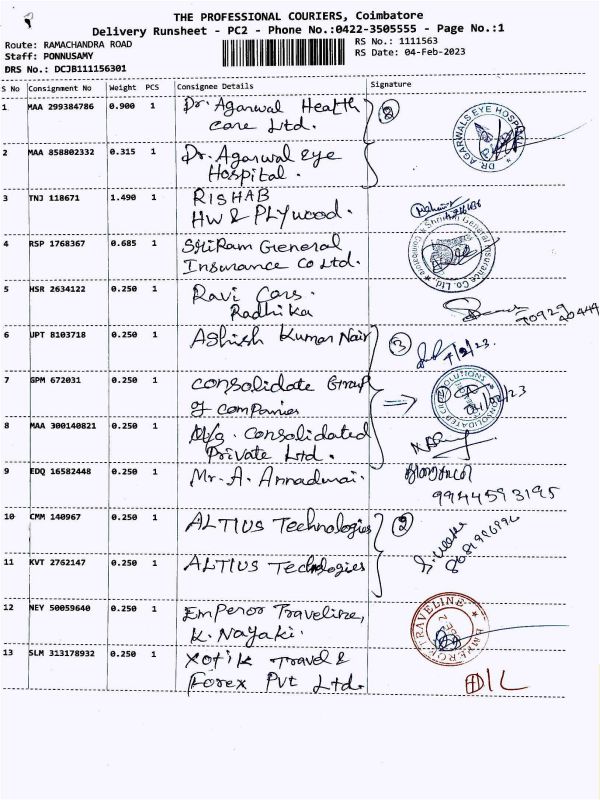 THE PROFESSIONAL COURIERS, Coimbatore
Delivery Runsheet - PC2 - Phone No.:0422-3505555 - Page No.:1
Route: RAMACHANDRA ROAD
Staff: PONNUSAMY
DRS No.: DCJB111156301
RS No.: 1111563
RS Date: 04-Feb-2023
S No Consignment No Weight PCS Consignee Details Signature
1 MAA 299384786 0.900 1 Dr. Agarwal Health
care Ltd.
2
DR AGARWALS EYE HOSPITAL
2 MAA 858802332 0.315 1 Dr. Agarwal Eye
Hospital.
3 TNJ 118671 1.490 1 RISHAB
HW & PLYwood.
4 RSP 1768367 0.685 1 Shri Ram General
Insurance Co Ltd.
Shriram General Insurance Co. Ltd. Coimbatore
5 HSR 2634122 0.250 1 Ravi Cars.
Radhika
70929
20444
6 UPT 8103718 0.250 1 Ashish Kumar Nair
3
7 GPM 672031 0.250 1 Consolidate Group
of companies
04/02/23
8 MAA 300140821 0.250 1 M/g. Consolidated
Private Ltd.
9 EDQ 16582448 0.250 1 Mr. A. Annadurai.
9944593195
10 CMM 140967 0.250 1 ALTIUS Technologies
2
11 KVT 2762147 0.250 1 ALTIUS Technologies
12 NEY 50059640 0.250 1 Emperor Traveline,
K. Nayaki.
EMPEROR TRAVELINE
13 SLM 313178932 0.250 1 Xotik Travel &
Forex Pvt Ltd.